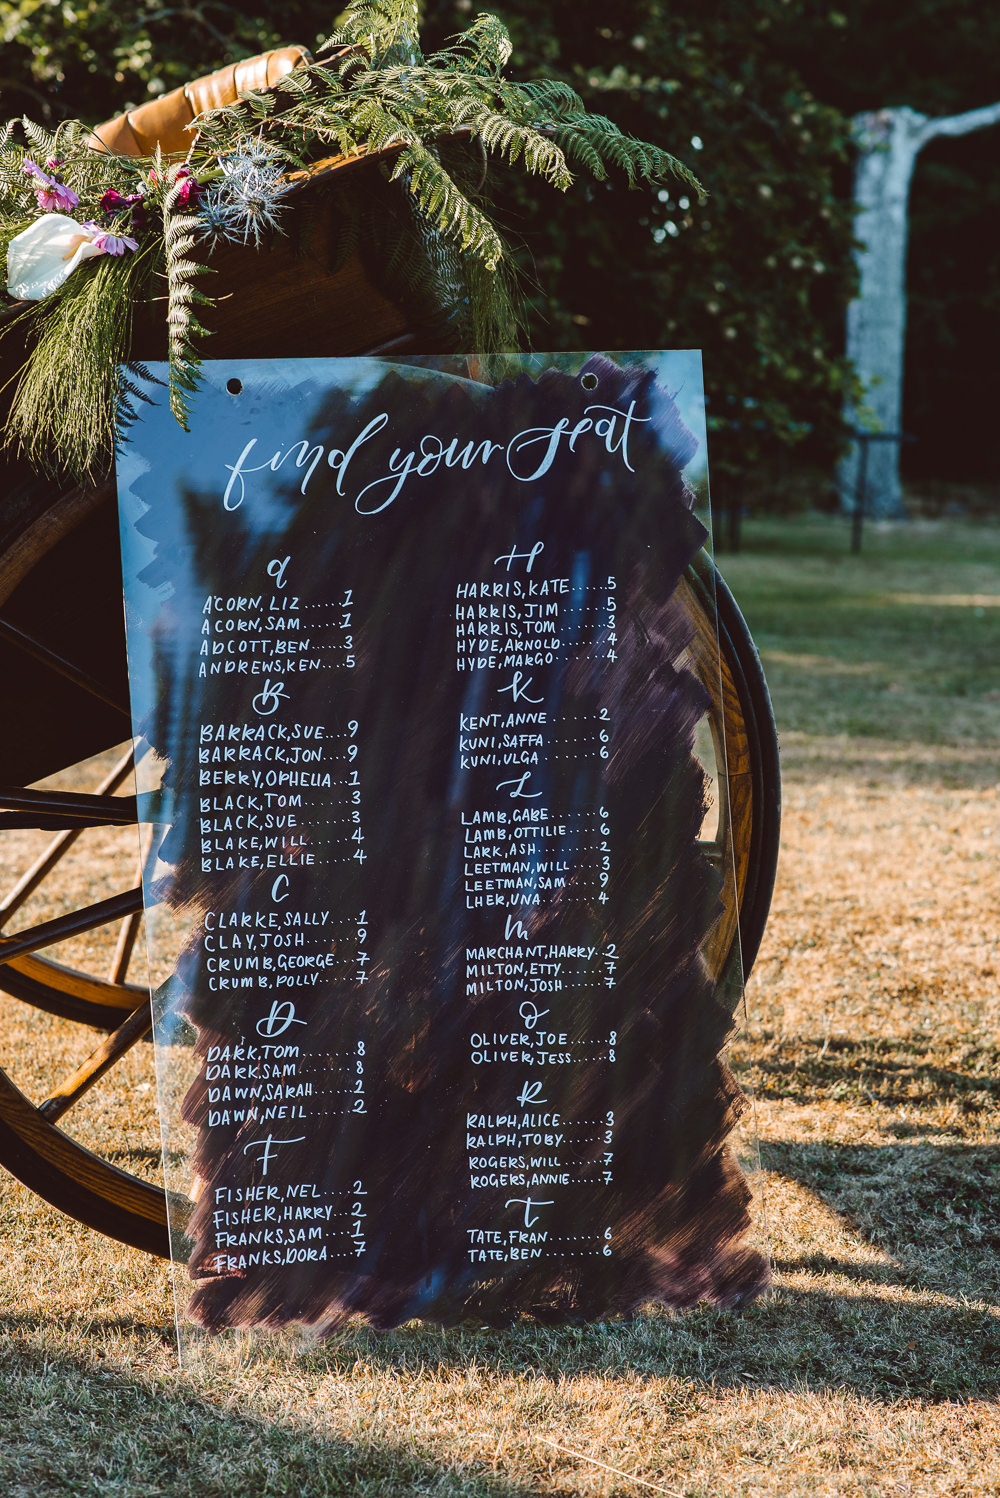 find your seat
a
ACORN, LIZ ...... 1
ACORN, SAM ..... 1
ADCOTT, BEN ..... 3
ANDREWS, KEN ... 5
B
BARRACK, SUE ... 9
BARRACK, JON ... 9
BERRY, OPHELIA .. 1
BLACK, TOM ...... 3
BLACK, SUE ...... 3
BLAKE, WILL ..... 4
BLAKE, ELLIE .... 4
C
CLARKE, SALLY .... 1
CLAY, JOSH ....... 9
CRUMB, GEORGE ... 7
CRUMB, POLLY .... 7
D
DARK, TOM ....... 8
DARK, SAM ....... 8
DAWN, SARAH ..... 2
DAWN, NEIL ...... 2
F
FISHER, NEL .... 2
FISHER, HARRY ... 2
FRANKS, SAM .... 1
FRANKS, DORA ... 7
H
HARRIS, KATE ..... 5
HARRIS, JIM ...... 5
HARRIS, TOM ..... 3
HYDE, ARNOLD .... 4
HYDE, MARGO ...... 4
K
KENT, ANNE ...... 2
KUNI, SAFFA ...... 6
KUNI, ULGA ....... 6
L
LAMB, GABE ...... 6
LAMB, OTTILIE .... 6
LARK, ASH ........ 2
LEETMAN, WILL .... 3
LEETMAN, SAM .... 9
LHER, UNA ....... 4
m
MARCHANT, HARRY .. 2
MILTON, ETTY ..... 7
MILTON, JOSH ..... 7
O
OLIVER, JOE ..... 8
OLIVER, JESS .... 8
R
RALPH, ALICE ..... 3
RALPH, TOBY ..... 3
ROGERS, WILL ..... 7
ROGERS, ANNIE .... 7
T
TATE, FRAN ....... 6
TATE, BEN ........ 6